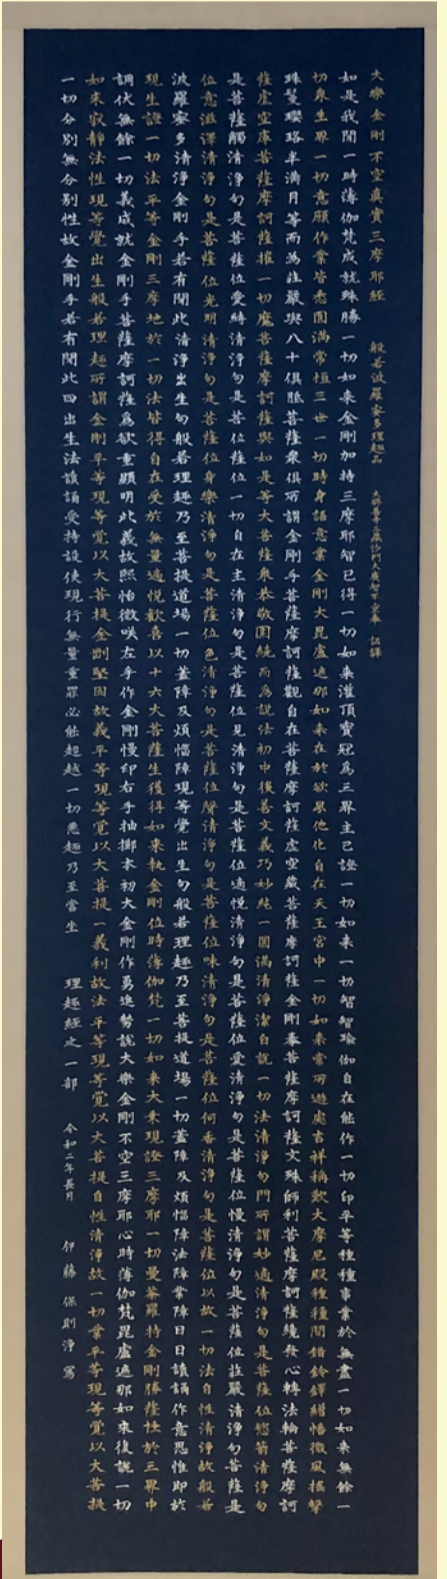 大樂金剛不空真實三摩耶經　般若波羅蜜多理趣品　大興善寺三藏沙門大廣智不空奉　詔譯
如是我聞一時薄伽梵成就殊勝一切如来金剛加持三摩耶智已得一切如来灌頂寶冠爲三界主已證一切如来一切智智瑜伽自在能作一切印平等種種事業於無盡一切如来無餘一
切衆生界一切意願作業皆悉圓滿常恒三世一切時身語意業金剛大毘盧遮那如来在於欲界他化自在天王宮中一切如来常所遊處吉祥稱歎大摩尼殿種種間錯鈴鐸繒幡微風揺撃
珠鬘瓔珞半滿月等而爲莊嚴與八十俱胝菩薩衆俱所謂金剛手菩薩摩訶薩觀自在菩薩摩訶薩虚空蔵菩薩摩訶薩金剛拳菩薩摩訶薩文殊師利菩薩摩訶薩纔發心轉法輪菩薩摩訶
薩虚空庫菩薩摩訶薩摧一切魔菩薩摩訶薩與如是等大菩薩衆恭敬圍繞而爲說法初中後善文義巧妙純一圓滿清浄潔白說一切法清浄句門所謂妙適清浄句是菩薩位慾箭清浄句
是菩薩觸清浄句是菩薩位愛縛清浄句是菩薩位薩位一切自在主清浄句是菩薩位見清浄句是菩薩位適悅清浄句是菩薩位愛清浄句是菩薩位慢清浄句是菩薩位莊嚴清浄句菩薩是
位意滋澤清浄句是菩薩位光明清浄句是菩薩位身樂清浄句是菩薩位色清浄句是菩薩位聲清浄句是菩薩位味清浄句是菩薩位何香清浄句是菩薩位以故一切法自性清浄故般若
波羅蜜多清浄金剛手若有聞此清浄出生句般若理趣乃至菩提道場一切蓋障及煩惱障現等覺出生句般若理趣乃至菩提道場一切蓋障及煩惱障法障業障日日讀誦作意思惟即於
現生證一切法平等金剛三摩地於一切法皆得自在受於無量適悅歡喜以十六大菩薩生獲得如来執金剛位時薄伽梵一切如来大乗現證三摩耶一切曼荼羅持金剛勝薩埵於三界中
調伏無餘一切義成就金剛手菩薩摩訶薩爲欲重顯明此義故熙怡微咲左手作金剛慢印右手抽擲本初大金剛作勇進勢說大樂金剛不空三摩耶心時薄伽梵毘盧遮那如来復說一切
如来寂靜法性現等覺出生般若理趣所謂金剛平等現等覺以大菩提金剛堅固故義平等現等覺以大菩提一義利故法平等現等覺以大菩提自性清浄故一切業平等現等覺以大菩提
一切分別無分別性故金剛手若有聞此四出生法讀誦受持設使現行無量重罪必能超越一切悪趣乃至當生　理趣經之一部　令和二年長月　伊藤保則浄寫